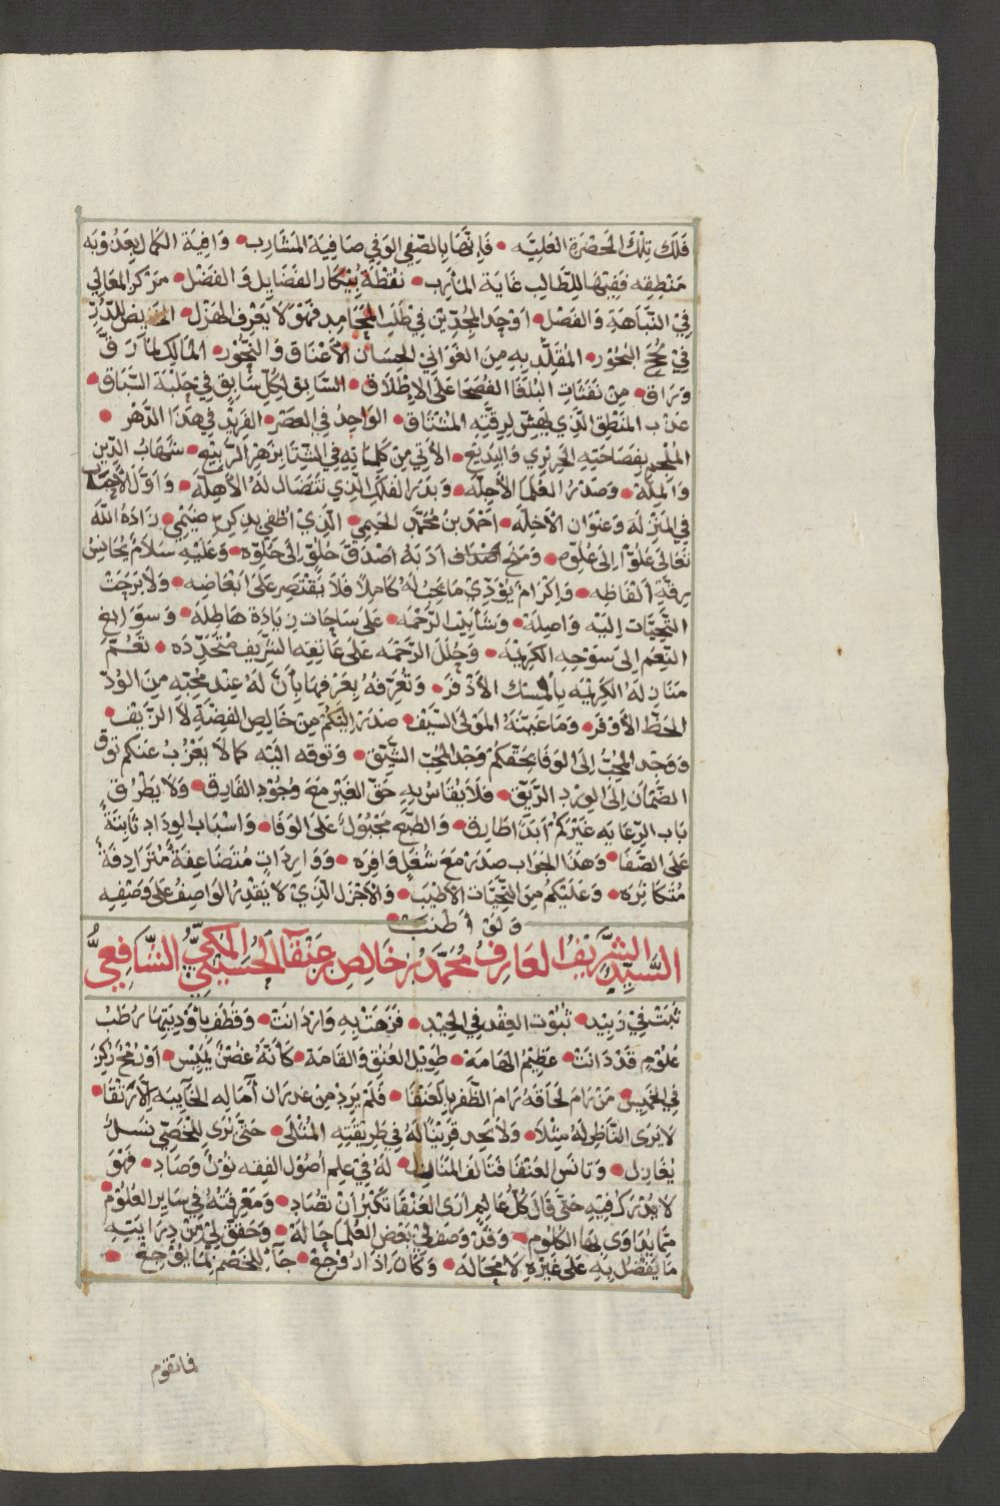 فَلَك تِلْكَ الحَضْرَةِ العَلِيَّه • فَإنَّهَا بِالصَّفِي الوَفِي صَافِيَة المَشَارِب • وَافِيَة الكَمَال بِعُذُوْبَة
مَنْطِقِه فَفِيْهَا لِلطَّالِب غَايَة المَأرَب • نقْطَة بِيْكَار الفَضَايِل وَالفَضْل • مَرْكز المَعَالِي
فِيْ النَّبَاهَةِ وَالفَصْل • اوْحَد المُجِدِّيْن فِيْ طَلَب المَحَامِد فَهْوَ لَا يَعْرِف الهَزْل • لِلدُّرِّ
فِيْ لُجَج البُحُوْر • المُقَلَّد بِهِ مِنَ الغَوَانِي الحِسَان الأعْنَاق وَالنُّحُوْر • المَالِك لمَا رَقَّ
وَرَاق • مِنْ نَفَثَاتِ البُلَغَا الفُصَحَا عَلَى الاِطْلَاق • السَّابِق لِكُلِّ سَابِقٍ فِيْ حَلْبَةِ السِّبَاق •
عَذْب المَنْطِق الَّذِي يَهَشّ لِرِقَّتِهِ المُشْتَاق • الوَاحِدُ فِي العَصْر • الفَرِيْد فِي هَذَا الدَّهْر •
المُلْجم بِفَصَاحَتِهِ الحَرِيْرِي وَالبَدِيْع • الآتِي مِنْ كَلِمَاتِهِ فِي الشِّتَا بِزَهْرِ الرَّبِيْع • شِهَابُ الدِّيْن
وَالمِلَّة • وَصَدْرُ العُلَمَا الأجِلَّه • وَبَدْر الفَلَك الَّذِي تَتَضَال لَهُ الأهِلَّه • وَاوَّل الأحِبَّا
فِي المَنْزِلَه وَعنْوَان الأخِلَّه • احْمَد بنُ مُحَمَّد الحَيمِي • الَّذِيْ بِذِكْرِه ضَيْمِي • زَادَهُ اللهُ
تَعَالَى عُلُوًّا اِلَى عُلُوِّه • وَمَنَح أصْدَاف ادَبِهِ اصْدَقَ حُلُوّ اِلَى حُلُوِّه • وَعَلَيْهِ سَلَامٌ يُجَانِسُ
رِقَّة ألْفَاظِه • وَاِكْرَامٌ يُؤَدِّيْ مَا يَجِبُ لَهُ كَامِلًا فَلَا يَقْتَصِر عَلَى ابْعَاضِه • وَلَا بَرِحَتْ
التَّحِيَّات اِلَيْهِ وَاصِلَة • وَشَآبِيْب الرَّحْمَه • عَلَى سَاحَات زِيَادَة هَاطِلَه • وَسَوَابِغ
النِّعَم اِلَى سَوْحِهِ الكَرِيْمَه • وَحُلَل الرَّحْمَه عَلَى عَاتِقِهِ الشَّرِيْف مُتَجَدِّدَه •
لَهُ الكَرِيْمَة بِالمِسْك الأذْفَر • وَتُعَرِّفُهُ بِعَرْفِهَا بِأنَّ لَهُ عِنْد مُحِبِّه مِنَ الوُدّ
الحَظّ الأوْفَر • وَمَا عَيَّنَهُ المَوْلَى السَّيْف • صَدَرَ اِلَيْكُمْ مِنْ خَالِصِ الفِضَّةِ لَا الزَّيْف •
وَوَجْد المُحِبّ اِلَى الوَفَا بِحَقِّكُم وَجْد المُحِبّ الشَّيِّق • وَتوقه اليْه كمَا لَا يَعْزُبُ عَنكم توْق
الضَّمْآن اِلَى الوِرْدِ الرَّيِّق • فَلَا يُقَاسُ بِهِ حَقّ الغَيْر مَعَ وُجُوْدِ الفَارِق • وَلَا يَطْرُق
بَاب الرِّعَايَة غَيْركمْ أبَدًا طَارِق • وَالطَّبْع مَجْبُوْلٌ عَلَى الوَفَا • وَاسْبَاب الوِدَادِ ثَابِتَةٌ
عَلَى الصَّفَا • وَهَذَا الجَوَاب صَدَرَ مَعَ شُغَلٍ وَافِرَه • وَوَارِدَاتٍ مُتَضَاعِفَةٍ مُتَرَادِفَةٍ
مُتَكَاثِرَه • وَعَلَيْكُمْ مِنَ التَّحِيَّات الأطْيَب • وَالأجْزَل الَّذِيْ لَا يَقْدِرُ الوَاصِفُ عَلَى وَصْفِه
وَلَوْ أطْنَبَ •
السَّيِّدُ الشَّرِيْفُ العَارِفُ مُحَمَّدُ بْنُ خَالِصِ بنِ عَنْقَا الحُسَيْنِيُّ المَكِّيُّ الشَّافِعِيُّ
ثَبَتَ فِيْ زَبِيْد • ثُبُوْتَ العِقْد فِي الجِيْد • فَزَهَتْ بِهِ وَازْدَانَتْ • وَقَطَفَ بِأوْدِيَتِهَا رُطَبَ
عُلُوْمٍ قَدْ دَانَتْ • عَظِيْمُ الهَامَة • طَوِيْلُ العُنُق وَالقَامَة • كَأنَّهُ غُصْنٌ يَمِيْس • اوْ رُمْحٌ رُكِزَ
فِي الخَمِيْس • مَنْ رَامَ لَحَاقَهُ رَامَ الظَّفَر بِالعَنْقَا • فَلَمْ يَرِدْ مِنْ غدْرَان آمَالِه الخَآئِبَة اِلَّا رَنْقَا •
لَا يَرَى النَّاظِر لَهُ مِثْلًا • وَلَا يَجِد قَرِيْنًا لَهُ فِي طَرِيْقَتِهِ المُثْلَى • حَتَّى نَرَى لِلْخَصِيّ نَسْلٌ
يُغَازِل • وَتَانَس العَنْقَا فَتَالَف المَنَازِل • لَهُ فِيْ عِلْم اُصُوْل الفِقه نُوْنٌ وَصَاد • فَهْوَ
لَا يُدْرَك فِيْهِ حَتَّى قَالَ كُلُّ عَالِمٍ أرَى العَنْقَا تَكْبُرُ انْ تُصَاد • وَمَعْرِفَتُهُ فِي سَايِر العُلُوْم
مِمَّا يُدَاوَى بِهَا الكُلُوْم • وَقَدْ وَصَفَ لِيْ بَعْض العُلَمَا حَالَهُ • وَحَقَّقَ لِيْ مِنْ دِرَايَتِه
مَا يَفْضُلُ بِهِ عَلَى غَيْرِهِ لَا مَحَالَه • وَكَانَ اِذَا رُوْجِعْ • جَآءَ لِلْخَصْمِ بِمَا يُوْجِعْ •
فاتقوم